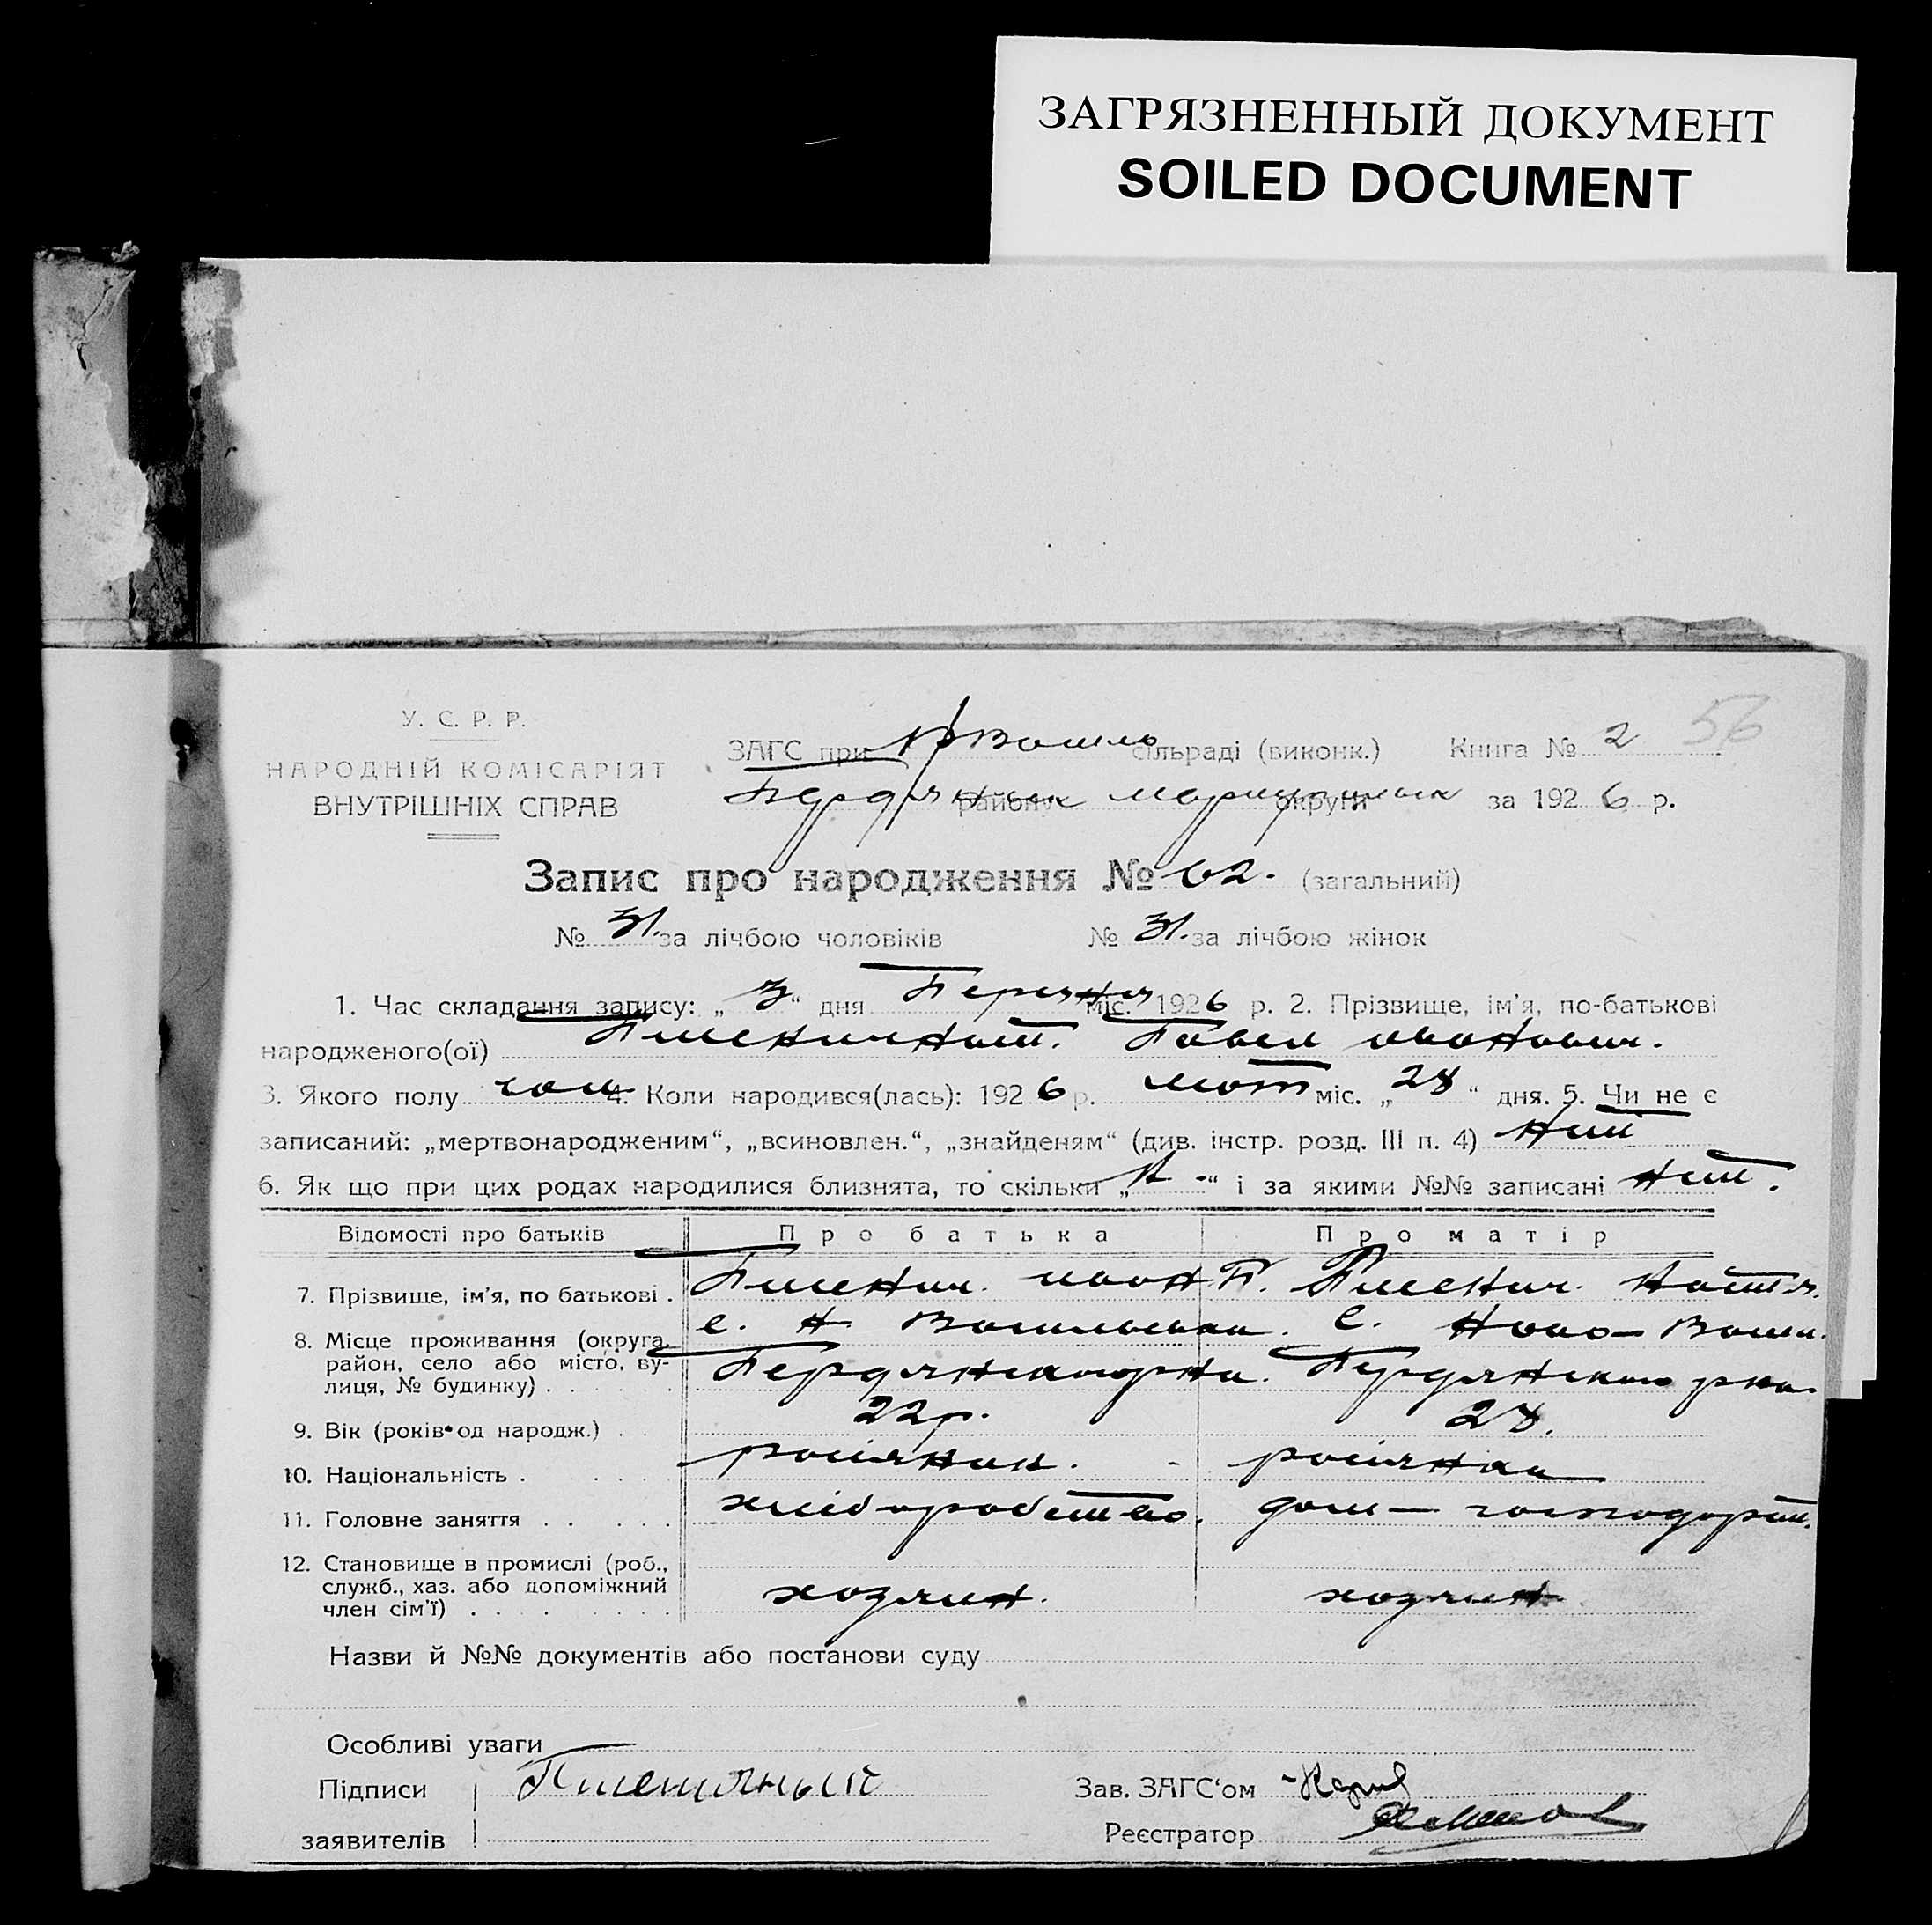 ЗАГРЯЗНЕННЫЙ ДОКУМЕНТ
SOILED DOCUMENT
56
У. С. Р. Р.
НАРОДНІЙ КОМІСАРІЯТ
ВНУТРІШНІХ СПРАВ
ЗАГС при сільраді (виконк.) Книга № 2
Бердянськ району округи за 1926 р.
Запис про народження № 62. (загальний)
№ 31. за лічбою чоловіків № 31. за лічбою жінок
1. Час складання запису: „3“ дня Березня міс. 1926 р. 2. Прізвище, ім'я, по-батькові
народженого(ої) Пшеничный. Павел Иванович.
3. Якого полу чол 4. Коли народився(лась): 1926 р. лют міс. „28“ дня. 5. Чи не є
записаний: „мертвонародженим“, „всиновлен.“, „знайденям“ (див. інстр. розд. III п. 4) ні
6. Як що при цих родах народилися близнята, то скільки „ “ і за якими №№ записані
Відомості про батьків Про батька Про матір
7. Прізвище, ім'я, по батькові . Пшенич. Иван П. Пшенич.
8. Місце проживання (округа, район, село або місто, вулиця, № будинку) . с. Н. Васильевка. с. Ново-Васил.
Бердянского р-на. Бердянского р-на.
9. Вік (років од народж.) . 22 р. 28.
10. Національність . росіянин. росіянка
11. Головне заняття . . хліборобство. дом— господарст.
12. Становище в промислі (роб., служб., хаз. або допоміжний член сім'ї) . хозяин. хозяин
Назви й №№ документів або постанови суду
Особливі уваги
Підписи заявителів Пшеничный
Зав. ЗАГС‘ом
Реєстратор